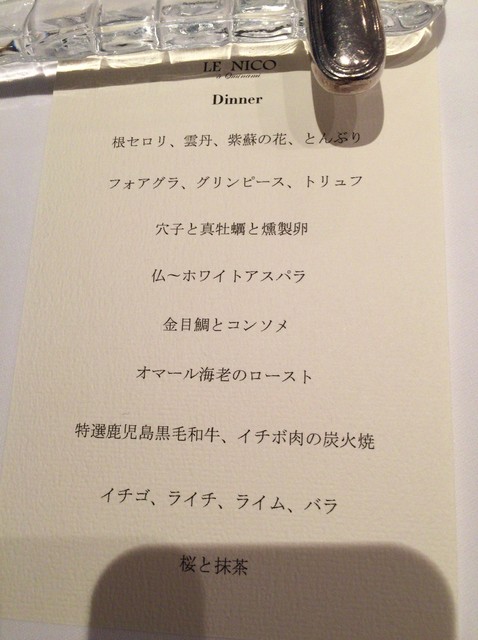 LE NICO
a Ouinami
Dinner
根セロリ、雲丹、紫蘇の花、とんぶり
フォアグラ、グリンピース、トリュフ
穴子と真牡蠣と燻製卵
仏〜ホワイトアスパラ
金目鯛とコンソメ
オマール海老のロースト
特選鹿児島黒毛和牛、イチボ肉の炭火焼
イチゴ、ライチ、ライム、バラ
桜と抹茶